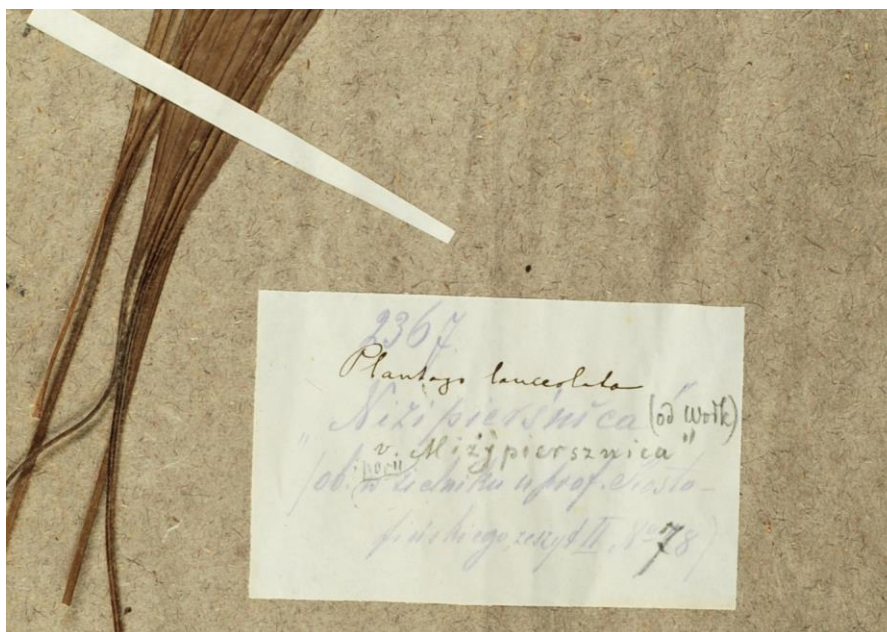 2367
Plantago lanceolata
"Niżipierśnica" (od Wołk)
v. Miżypiersznica"
(ob. w zielniku u prof. Rosta-
fińskiego, zeszyt II, No 78)